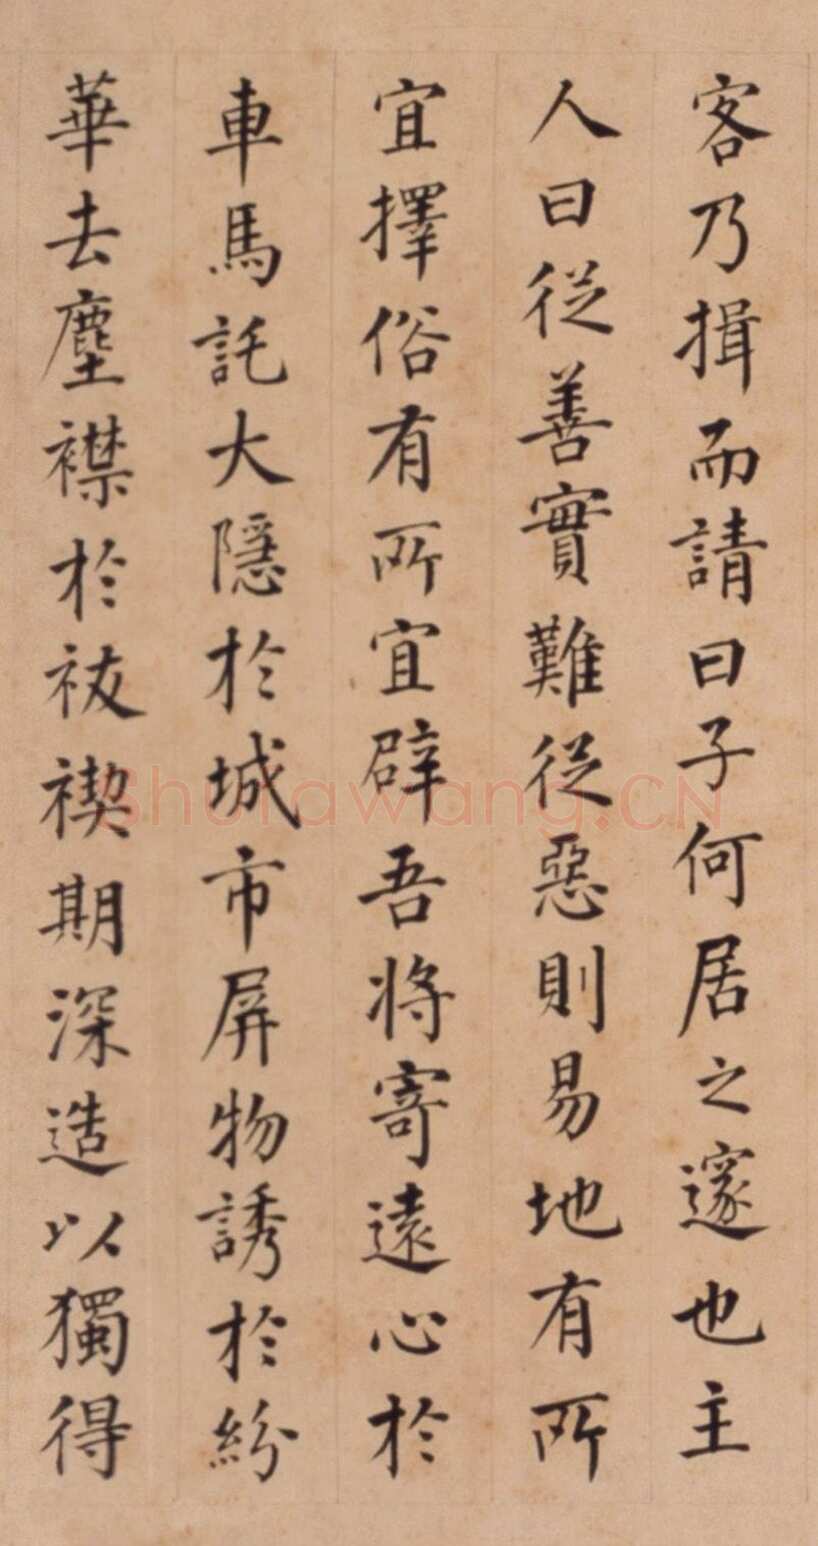 客乃揖而請曰子何居之邃也主
人曰從善實難從惡則易地有所
宜擇俗有所宜辟吾將寄遠心於
車馬託大隱於城市屏物誘於紛
華去塵襟於祓禊期深造以獨得
Shufawang.CN